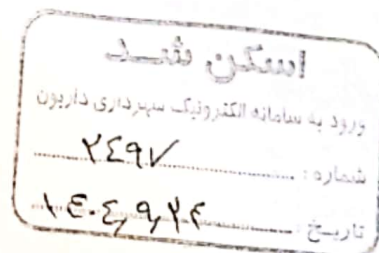 اسکن شد
ورود به سامانه الکترونیک شهرداری داریون
شماره : ۲۴۹۷
تاریخ : ۱۴۰۴,۹,۲۴